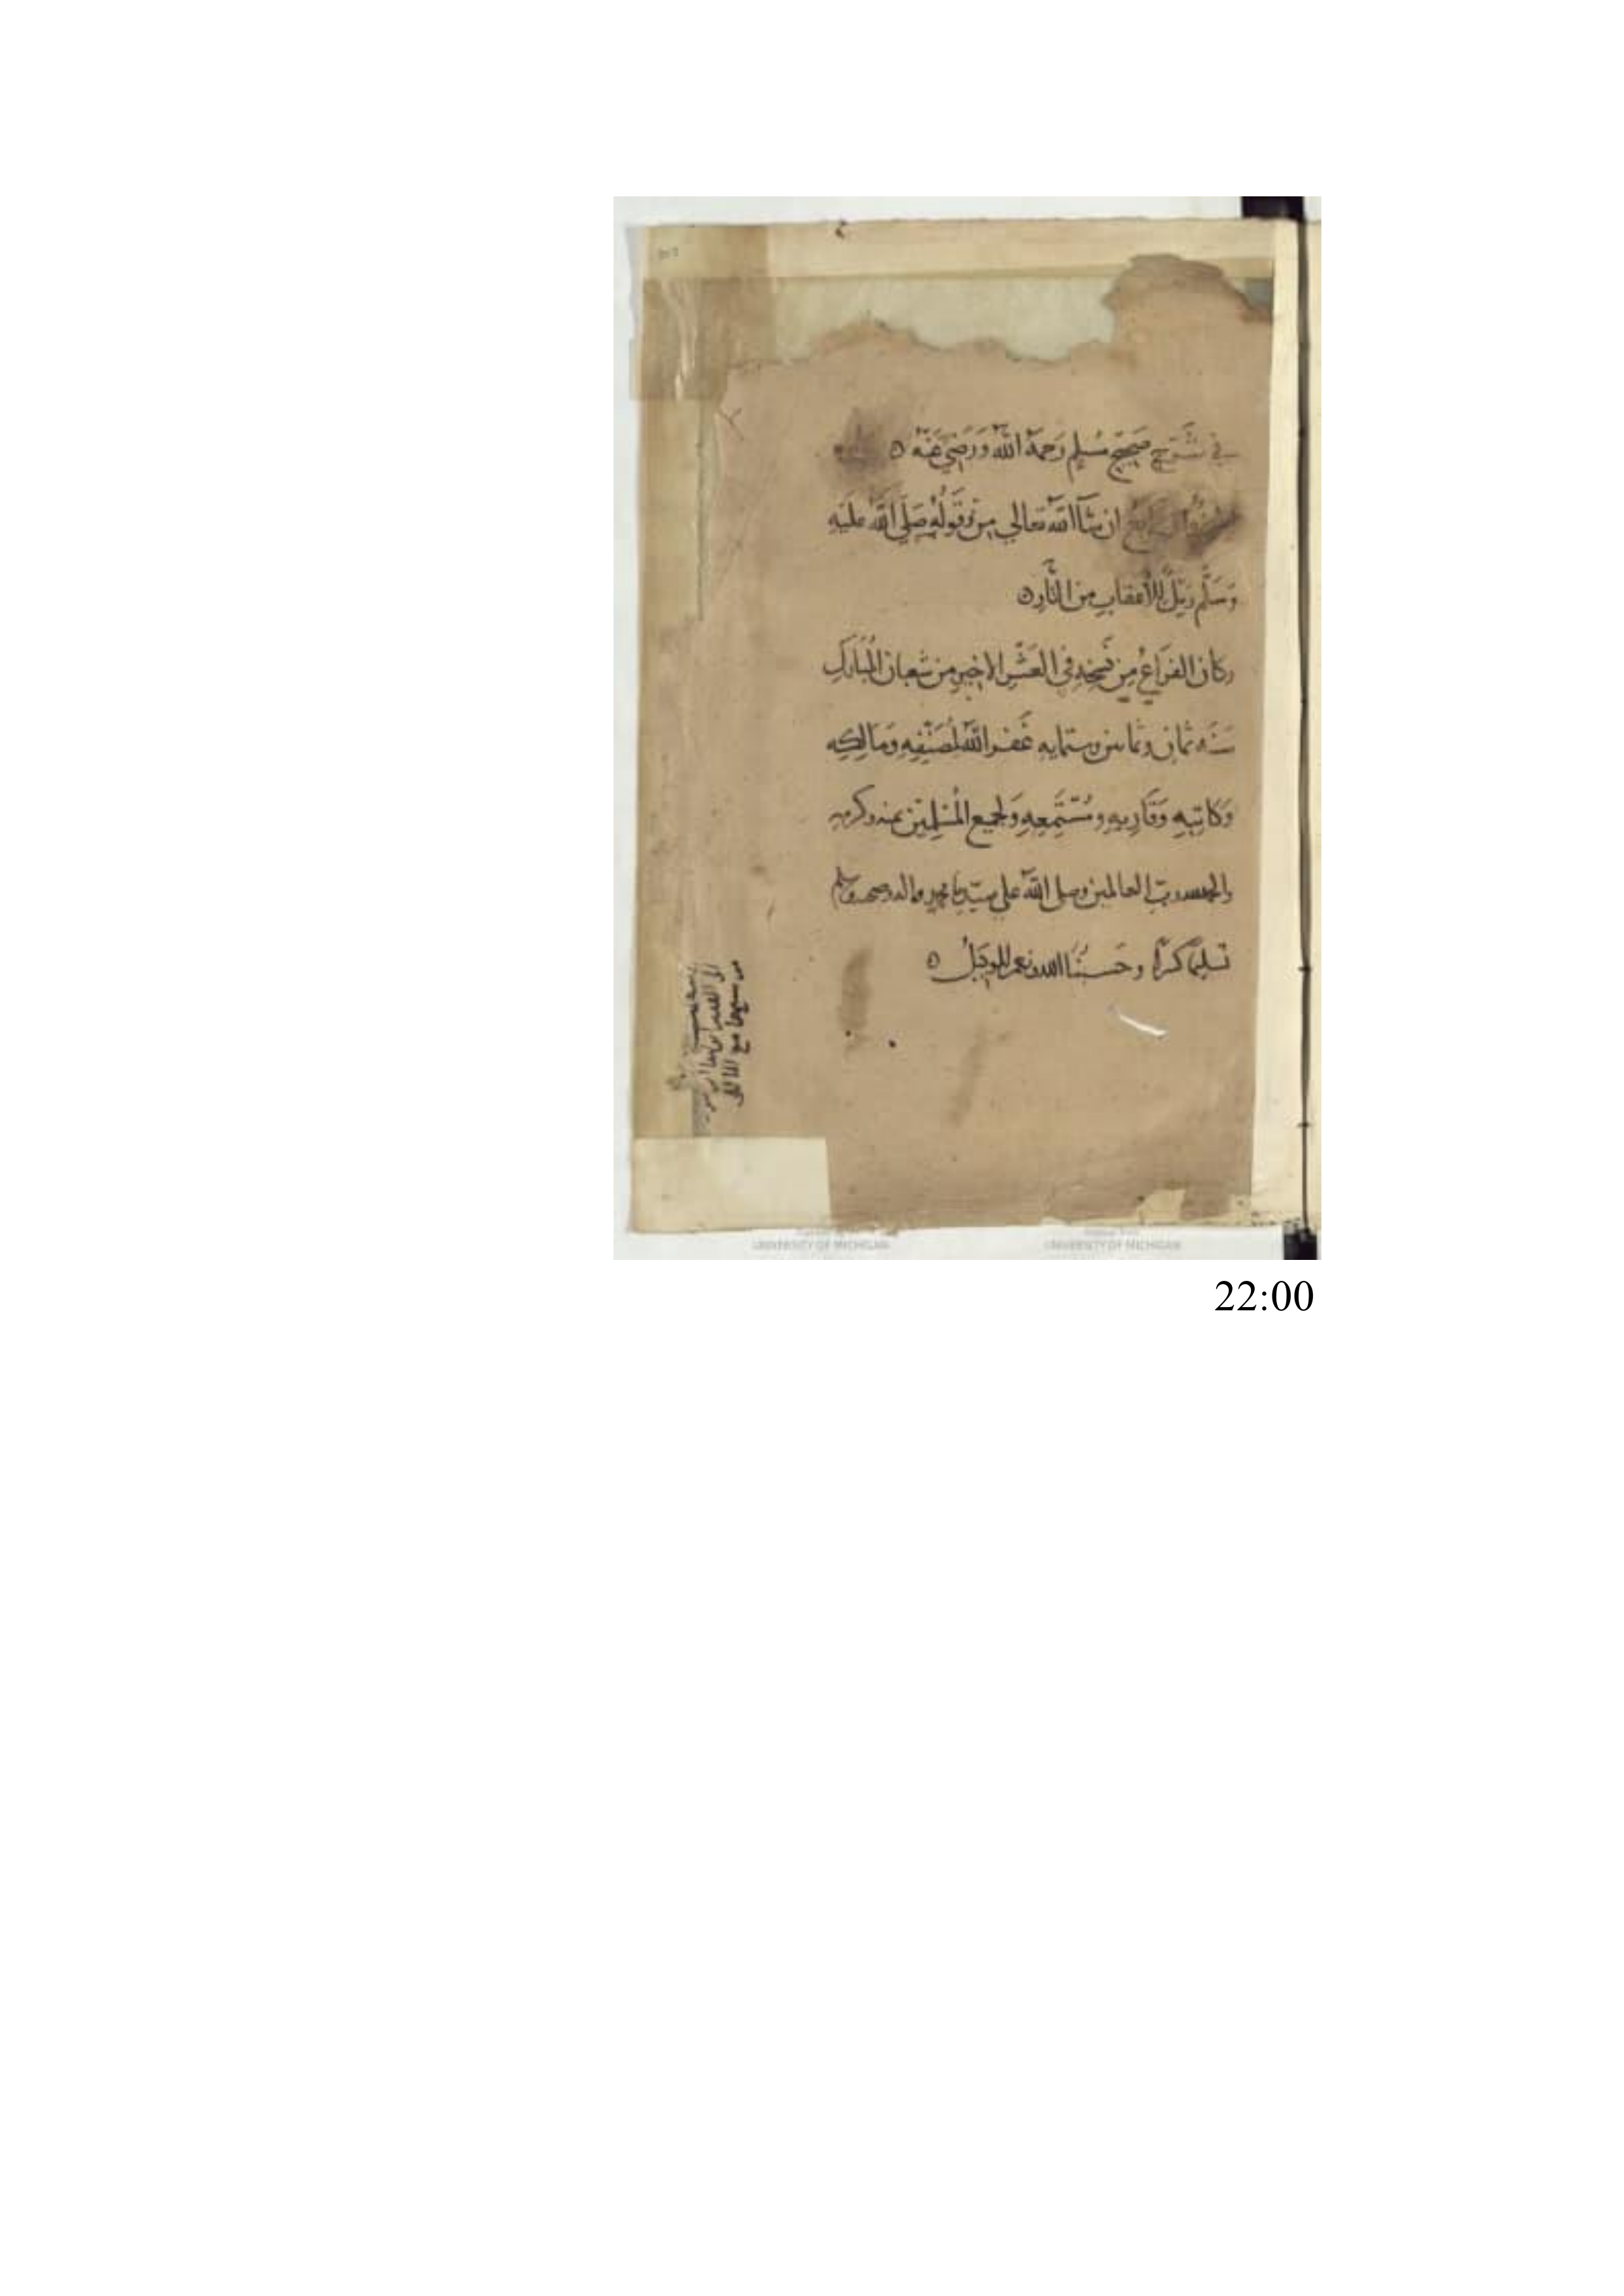 في شرح صحيح مسلم رحمه الله ورضي عنه
ان شاالله تعالي من قوله صلى الله عليه
وسلم ويل للأعقاب من النار
وكان الفراغ من نسخه في العشر الاخير من شعبان المبارك
سنه ثمان وثمانين وستمايه غفر الله لمصنفه ومالكه
وكاتبه وقاريه ومستمعه ولجميع المسلمين بمنه وكرمه
والحمد لله رب العالمين وصلى الله على سيدنا محمد واله وصحبه وسلم
تسليما كثيرا وحسبنا الله ونعم الوكيل
UNIVERSITY OF MICHIGAN UNIVERSITY OF MICHIGAN
22:00